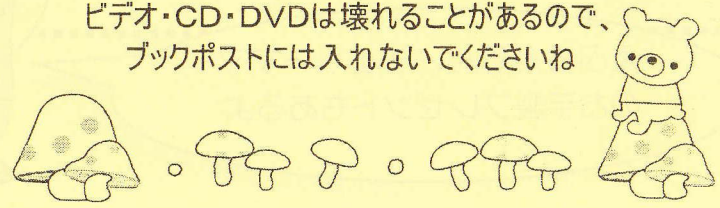 ビデオ・CD・DVDは壊れることがあるので、
ブックポストには入れないでくださいね